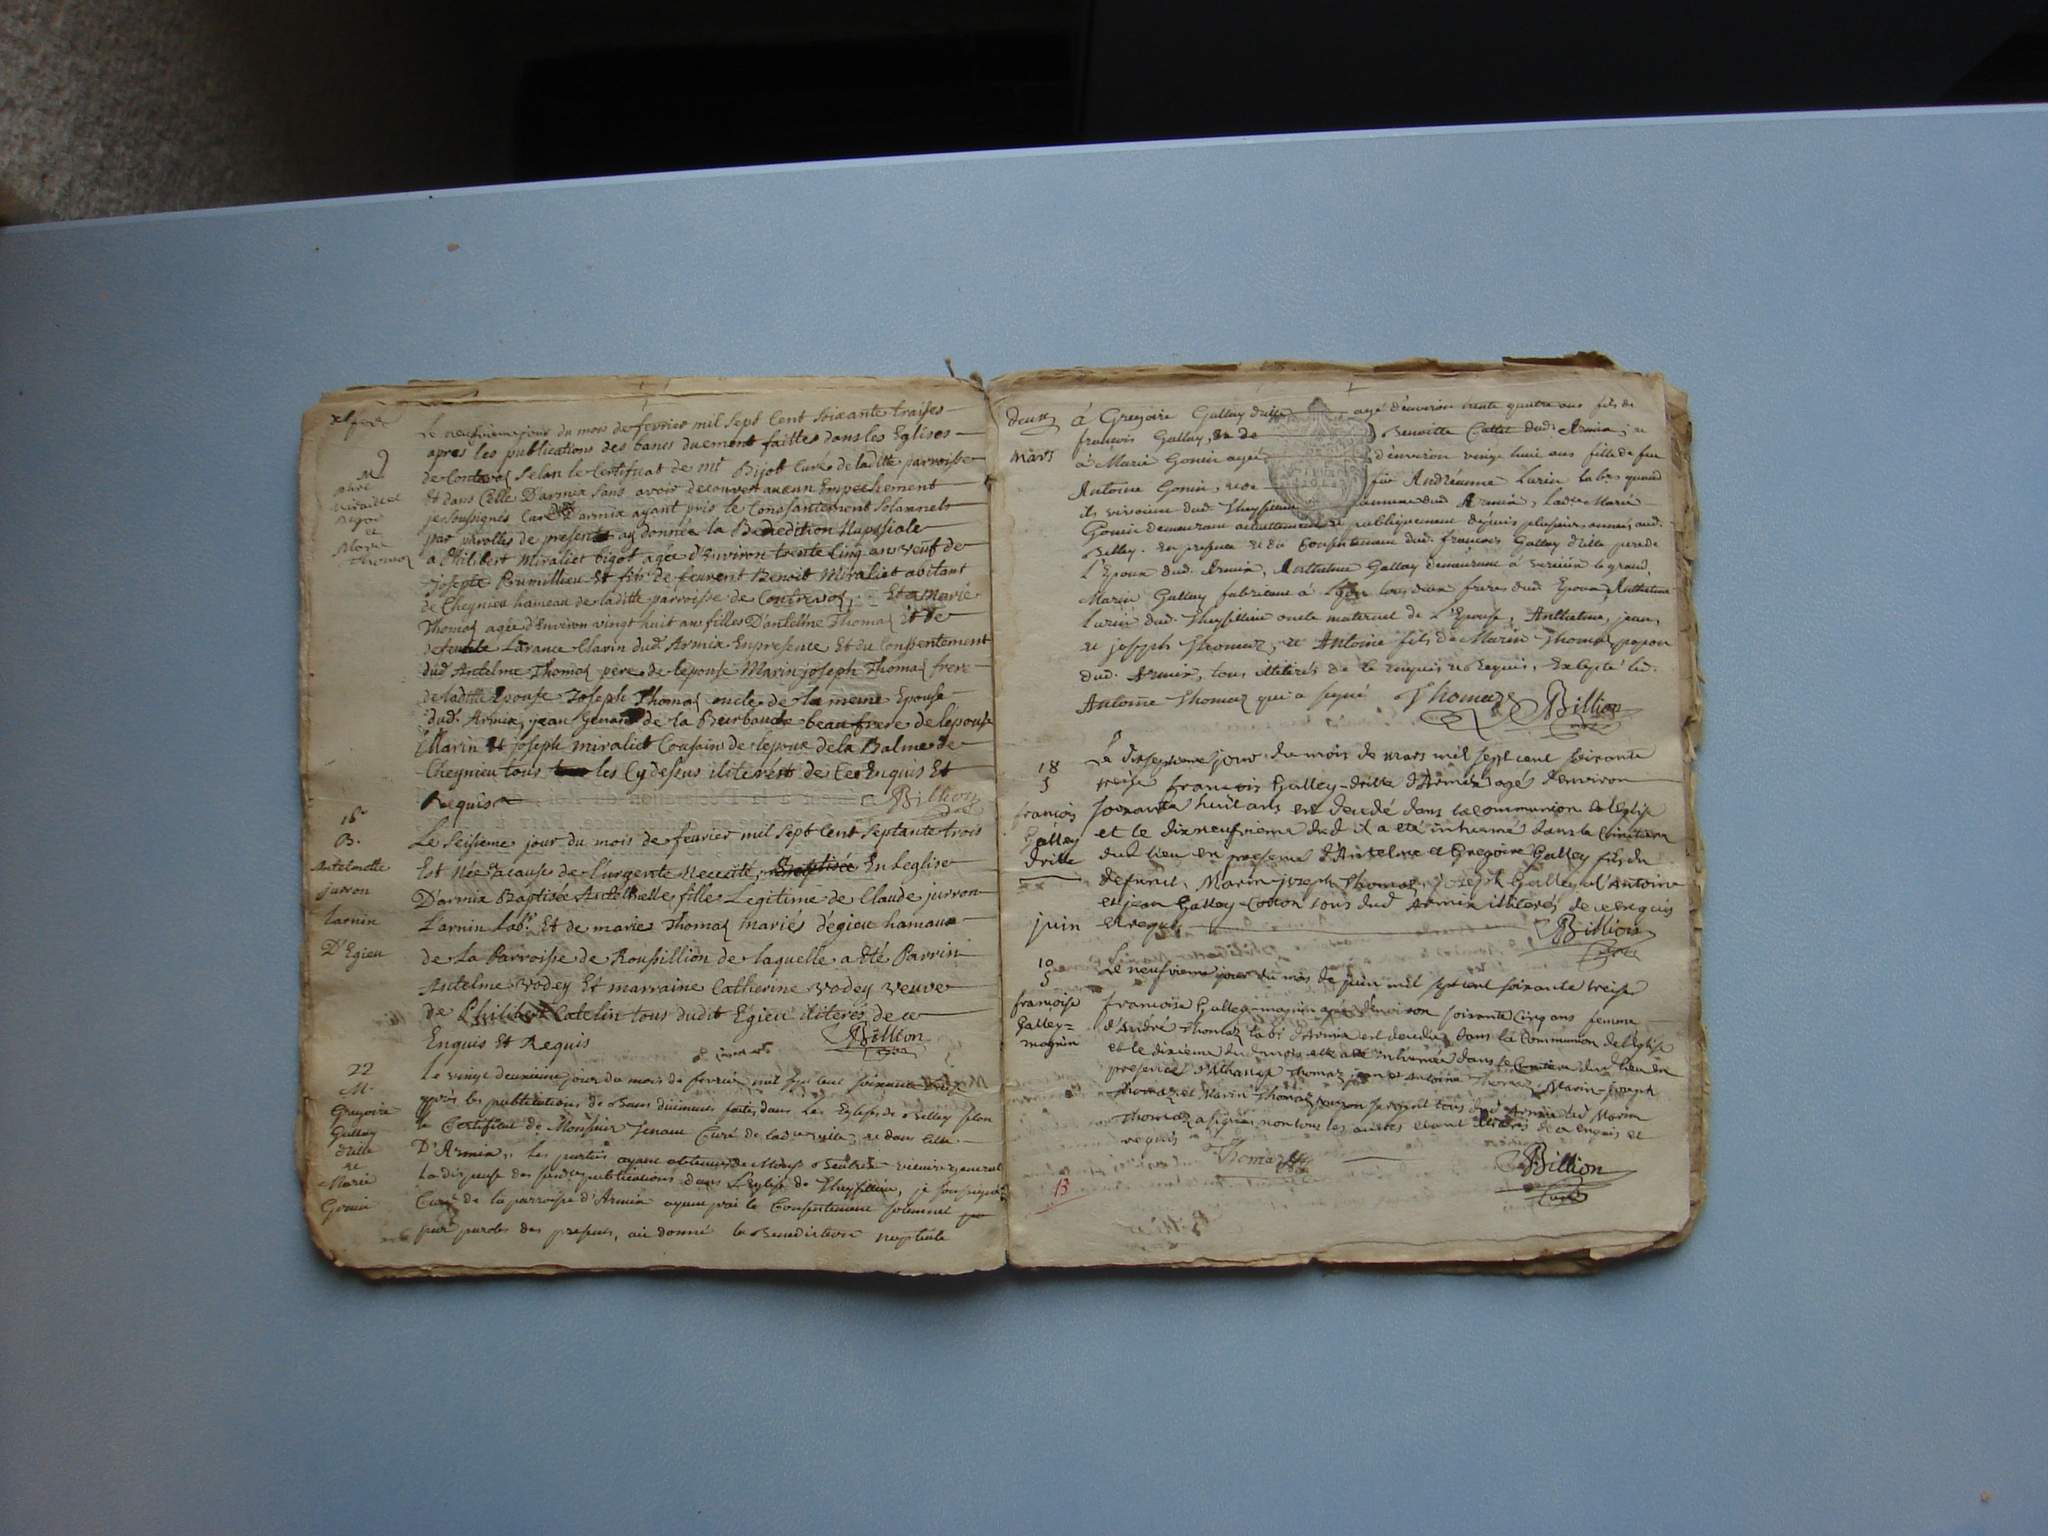 Le neufvieme jour du mois de fevrier mil Sept Cent Soixante traises
apres les publications des bancs duement faittes dans les Eglises
de Contrevoz Selan le Certificat de mr Bijot Curé de laditte parroisse
Et dans Celle D'armix Sans avoir decouvert aucun Empechement
je Soussignés Curé D'armix ayant pris le Consantement Solannels
par parolles de present ay donnée la Benedition Nupssiale
a Philibert Miraliet bigot agée d'Environ trente Cinq ans veuf de
Josepte Brumillieu Et fils de feuvent Benoit Miraliet abitant
de Cheynieu hameau de laditte parroisse de Contrevoz Et a Marie
Thomaz agée d'Environ vingt huit ans filles D'antelme Thomaz Et de
Larance Clavin dud Armix Enpresence Et du Conssentement
dud Antelme Thomaz père de lepouse Marin joseph Thomaz frere
de laditte Epouse Joseph Thomaz oncle de la meme Epouse
dud. Armix, jean de la Burbanche beaufrere de lépouse
Marin Et joseph miraliet Cousins de lepoux de la Balme de
Cheynieu tous les Cy desus iliterést de Cer Enquis Et
Requis Billion
16e
B.
Antelmette
jurron
Larnin
D'Egieu
Le Seisieme jour du mois de fevrier mil Sept Cent Septante trois
Est née a cause de l'urgente Necessité, Baptisée En Leglise
D'armix Baptisée Antelmette fille Legitime de Claude jurron
Larnin Lab.r Et de marie Thomaz mariés d'égieu hamaux
de La Parroisse de Roussillion de laquelle a été Parrin
Antelme vodey Et marraine Catherine vodey veuve
de Philibert Catelin tous dudit Egieu iliterés de ce
Enquis Et Requis Billion
22
M.
Gregoire
Gallay
drille
et
Marie
Gonin
Le vingt deuxieme jour du mois de fevrier mil sept cent soixante
après les publications de Bans duement faites dans les Eglises de Belley selon
le Certificat de Monsieur Curé de lad.e ville, et dans celle
D'Armix, les parties ayant obtenu de Mons.r vicaire general
la dispense des publications dans l'Eglise de Theysillieu, je soussigné
Curé de la parroisse d'Armix ayant pris le Consentement solemnel
par paroles des presens, ai donné la Benediction nuptiale
mars
à Gregoire Gallay drille agé d'environ trente quatre ans fils de
francois Gallay, et de Benoitte Cattet dud. Armix, et
à Marie Gonin agée d'environ vingt huit ans fille de feu
Antoine Gonin, et de fue Andréanne Lurin lab.rs quand
ils vivoient dud. Theysillieu dud Armix, lad.e Marie
Gonin demeurant actuellement et publiquement depuis plusieurs années aud.
Belley. en presence et du Consentement dud. francois Gallay drille pere de
L'Epoux dud. Armix, Anthelme Gallay demeurant à le grand,
Marin Gallay fabricant à Lyon tous deux freres dud Epoux, Anthelme
Lurin dud. Theysillieu oncle maternel de L'Epouse, Anthelme, jean,
et joseph Thomaz, et Antoine fils de Marin Thomaz
dud. Armix, tous illitérés de ce enquis et Requis, Excepté led.
Antoine Thomaz qui a signé Thomaz Billion
18
S
francois
Galley
drille
Le dixseptieme jour du mois de mars mil sept cent soixante
treise francois Galley-drille d'Armix agé d'environ
soixante huit ans est decedé dans la communion de l'eglise
et le dixneufvieme dud il a eté inhumé dans le Cimitiere
dud lieu en presence d'Antelme et Gregoire Galley fils du
defunt, Marin-joseph Thomaz, joseph Galley d'Antoine
et jean Galley-Cotton tous dud Armix illiterés de ce enquis
et requis Billion
juin
10
S
francoise
Galley=
magnin
Le neufvieme jour du mois de juin mil sept cent soixante treise
francoise Galley-magnin agée d'environ soixante Cinq ans femme
d'André Thomaz lab.r d'Armix est decedée dans la Communion de l'eglise
et le dixieme du d mois elle a eté inhumée dans le Cimitiere dud lieu en
presence d'Athanase Thomaz, jean et Antoine Thomaz, Marin-joseph
Thomaz et Marin Thomaz tous dud Armix dud Marin
Thomaz a signé, non tous les autres etant illiterés de ce enquis et
requis Thomaz Billion
curé
13